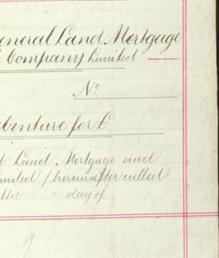 eneral Land Mortgage
Company Limited
No
ebenture for £
d Land Mortgage and
imited / hereinafter called
the day of